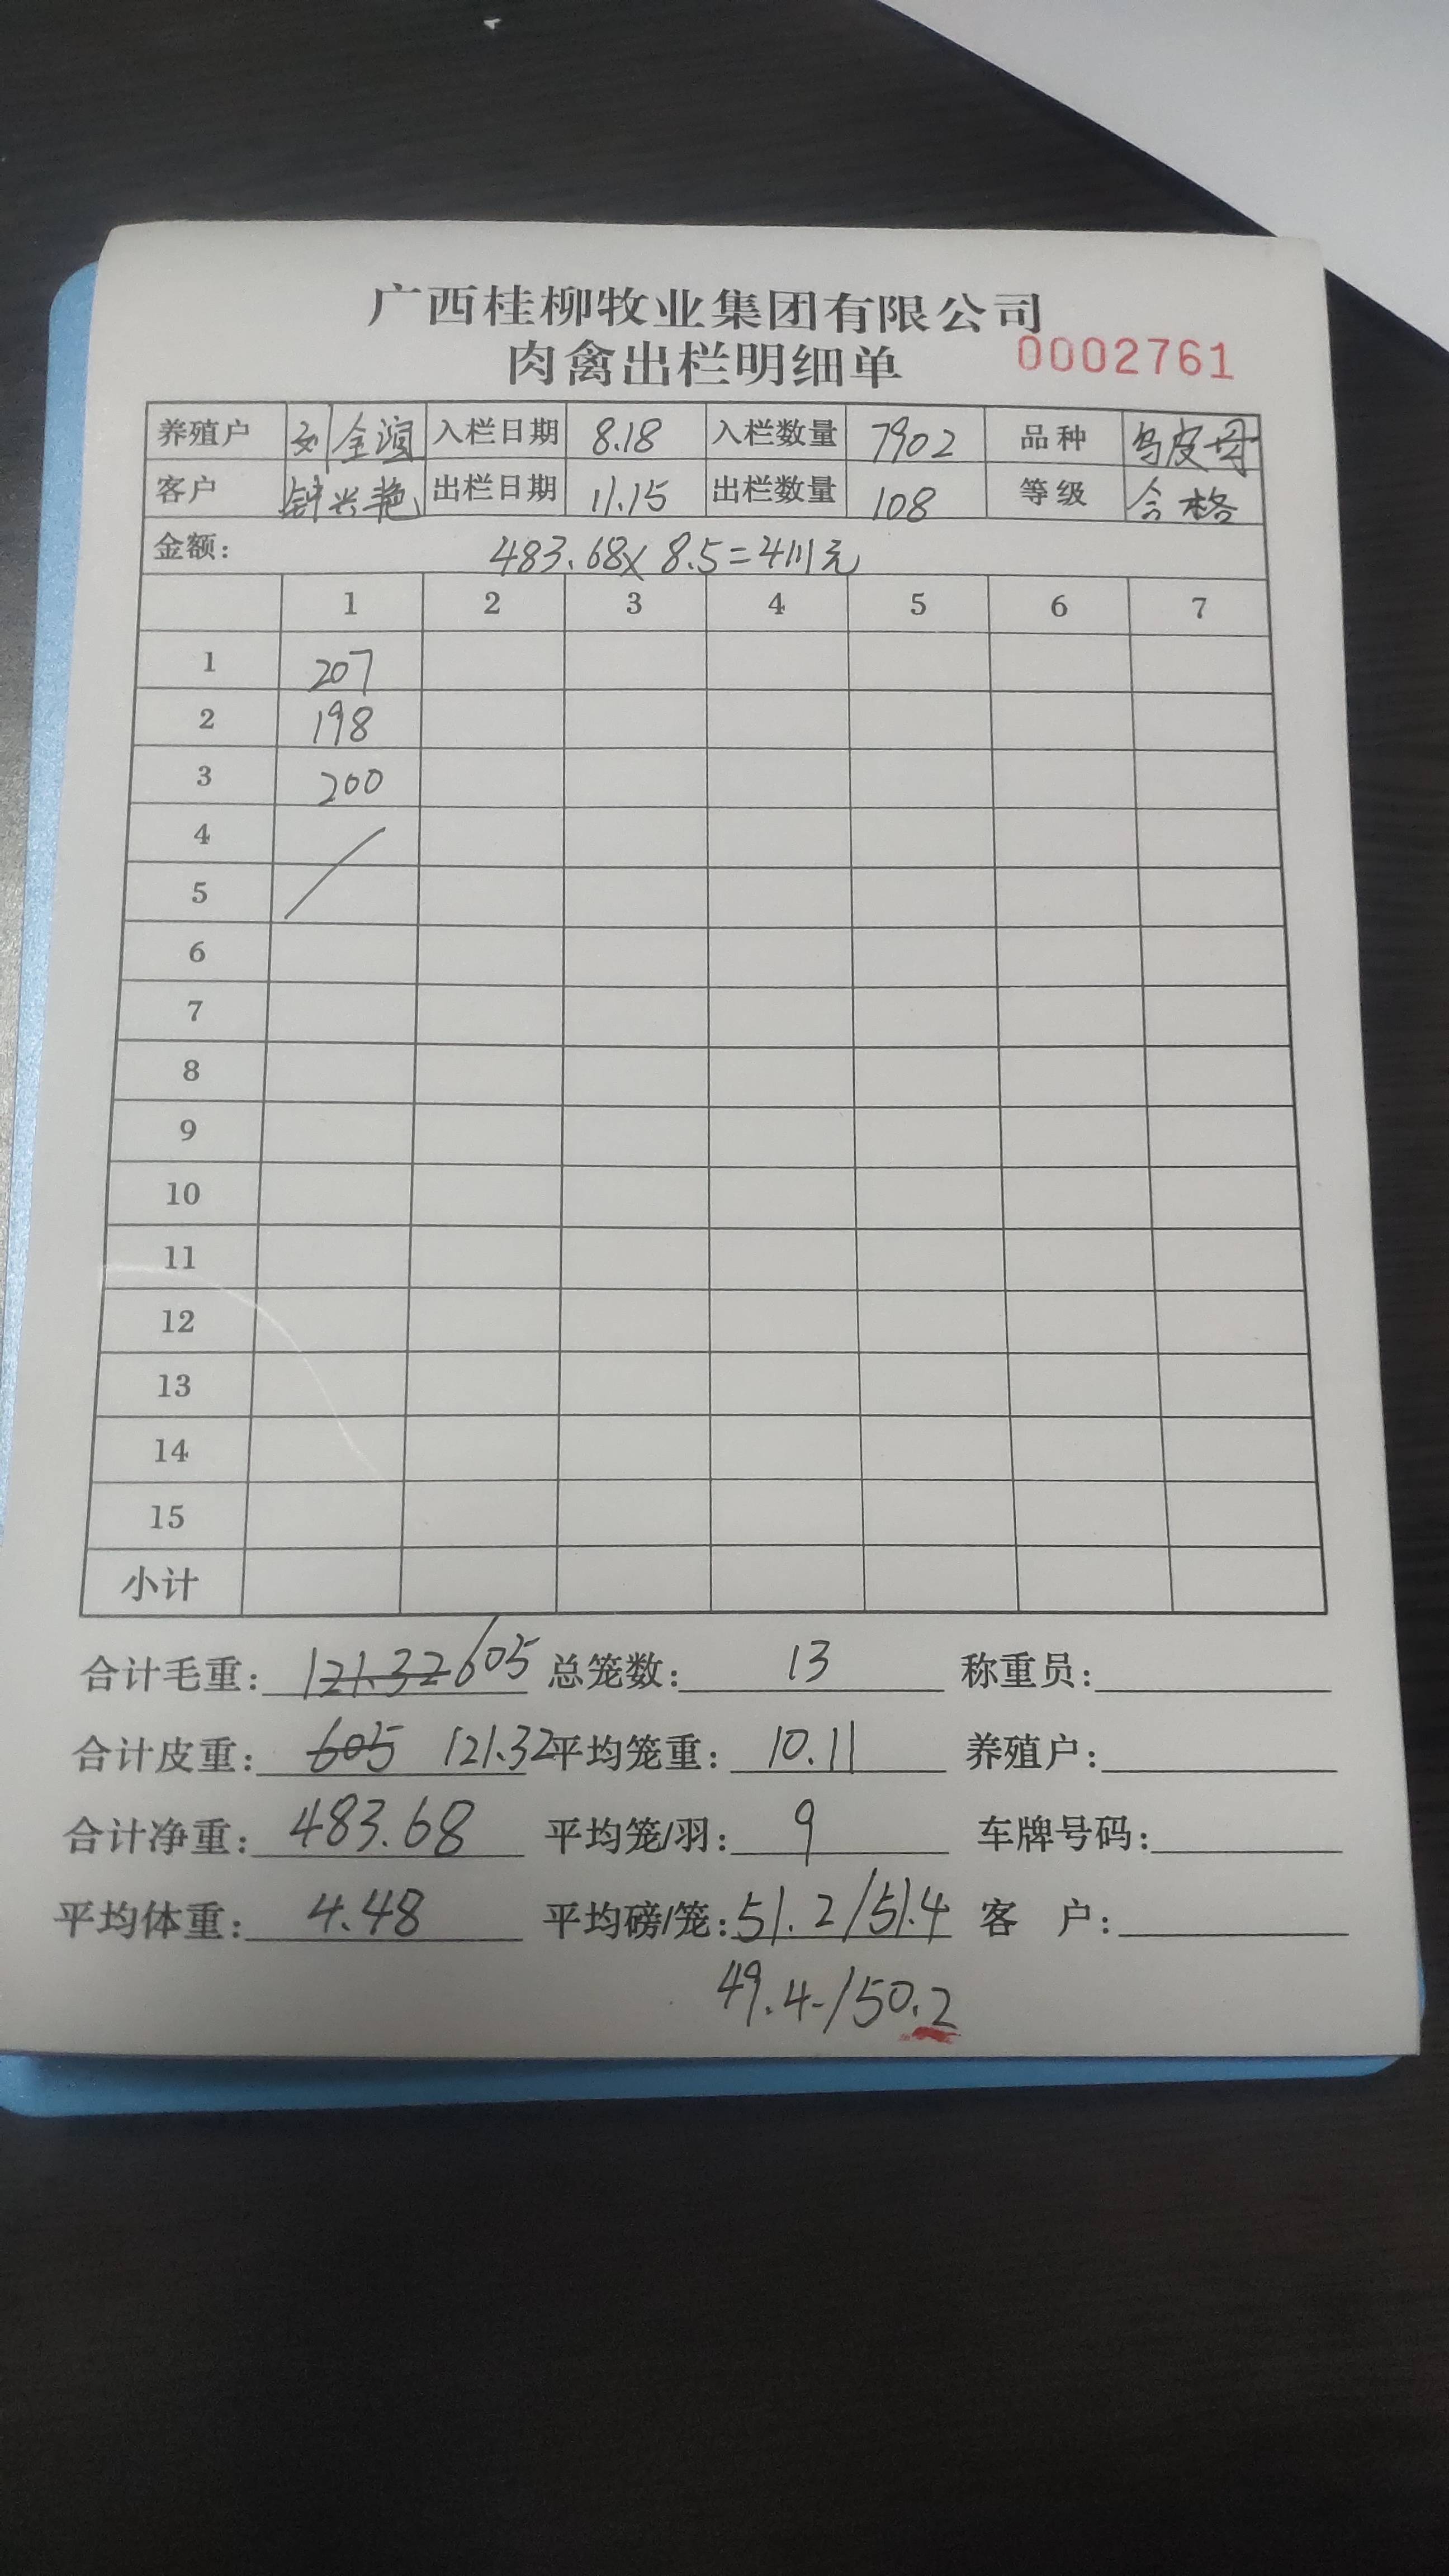 广西桂柳牧业集团有限公司
肉禽出栏明细单 0002761
养殖户 刘全 入栏日期 8.18 入栏数量 7902 品种 乌皮母
客户 钟兴艳 出栏日期 11.15 出栏数量 108 等级 合格
金额: 483.68x8.5=4111元
1 2 3 4 5 6 7
1 207
2 198
3 200
4
5
6
7
8
9
10
11
12
13
14
15
小计
合计毛重: 121.32 605 总笼数: 13 称重员:
合计皮重: 605 121.32 平均笼重: 10.11 养殖户:
合计净重: 483.68 平均笼/羽: 9 车牌号码:
平均体重: 4.48 平均磅/笼: 51.2/51.4 客 户:
49.4-/50.2